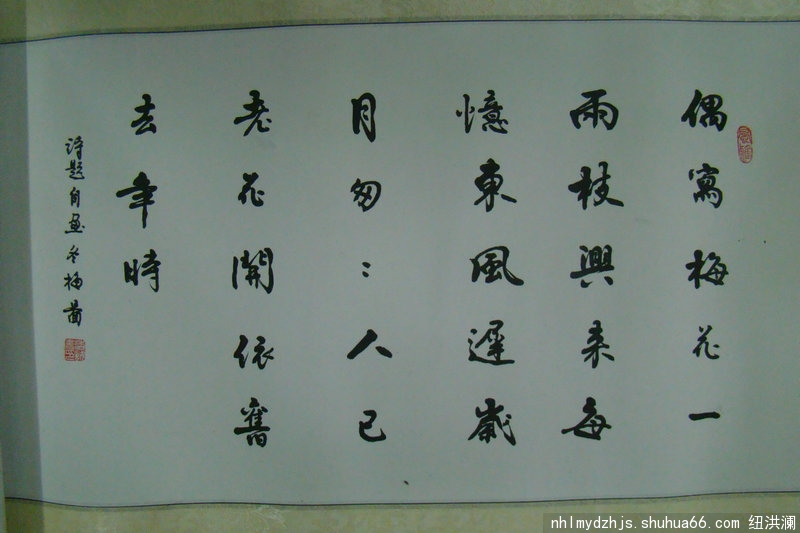 偶寫梅花一
兩枝興来每
憶東風遲歲
月匆〻人已
老花開依舊
去年時
詩題自画冬梅圖
nhlmydzhjs.shuhua66.com 纽洪澜